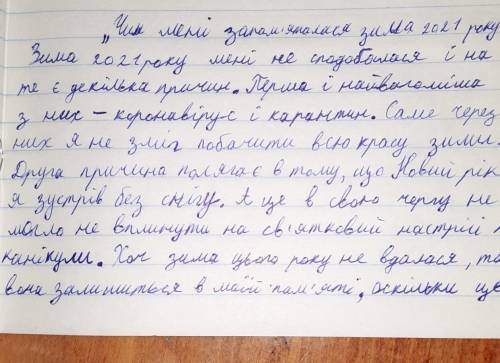 „Чим мені запам'яталася зима 2021 року
Зима 2021 року мені не сподобалася і на
те є декілька причин. Перша і найвагоміша
з них – коронавірус і карантин. Саме через
них я не зміг побачити всю красу зими.
Друга причина полягає в тому, що Новий рік
я зустрів без снігу. А це в свою чергу не
могло не вплинути на св'ятковий настрій
канікули. Хоч зима цього року не вдалася, та
вона залишиться в моїй пам'яті, оскільки це